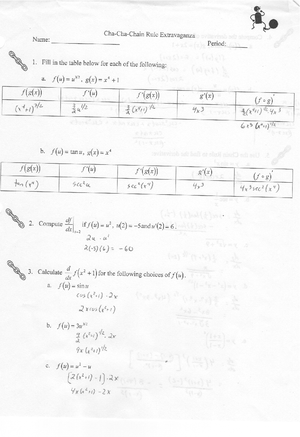 Cha-Cha-Chain Rule Extravaganza
Name: Period:
1. Fill in the table below for each of the following:
a. f(u) = u^{3/2}, g(x) = x⁴ + 1
f(g(x)) f'(u) f'(g(x)) g'(x) (f ∘ g)'
(x⁴+1)^{3/2} 3/2 u^{1/2} 3/2 (x⁴+1)^{1/2} 4x³ (x⁴+1)^{1/2} 4x³
6x³ (x⁴+1)^{1/2}
b. f(u) = tan u, g(x) = x⁴
f(g(x)) f'(u) f'(g(x)) g'(x) (f ∘ g)'
tan(x⁴) sec²u sec²(x⁴) 4x³ 4x³ sec²(x⁴)
2. Compute df/dx if f(u) = u², u(2) = -5 and u'(2) = 6.
2u · u'
2(-5)(6) = -60
3. Calculate d/dx f(x² + 1) for the following choices of f(u).
a. f(u) = sin u
cos(x²+1) · 2x
2x cos(x²+1)
b. f(u) = 3u^{3/2}
9/2 (x²+1)^{1/2} · 2x
9x(x²+1)^{1/2}
c. f(u) = u² - u
[2(x²+1) - 1] · 2x
4x(x²+1) - 2x